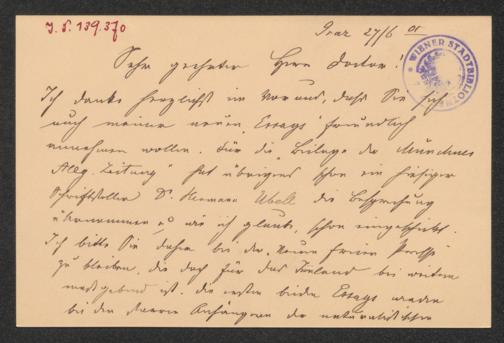 I. N. 139.370
Graz 27/6 01
WIENER STADTBIBLIOTHEK
Sehr geehrter Herr Doctor!
Ich danke herzlichst im Voraus, daß Sie sich
auch meiner neuen "Essays" freundlich
annehmen wollen. Für die "Beilage der Münchner
Allg. Zeitung" hat übrigens schon ein hiesiger
Schriftsteller Dr. Hermann Ubell die Besprechung
übernommen u. wie ich glaube, schon eingeschickt.
Ich bitte Sie daher bei der "Neuen freien Presse"
zu bleiben, die doch für das Inland bei weitem
maßgebend ist. Die ersten beiden Essays werden
bei den starren Anhängern der naturalistischen